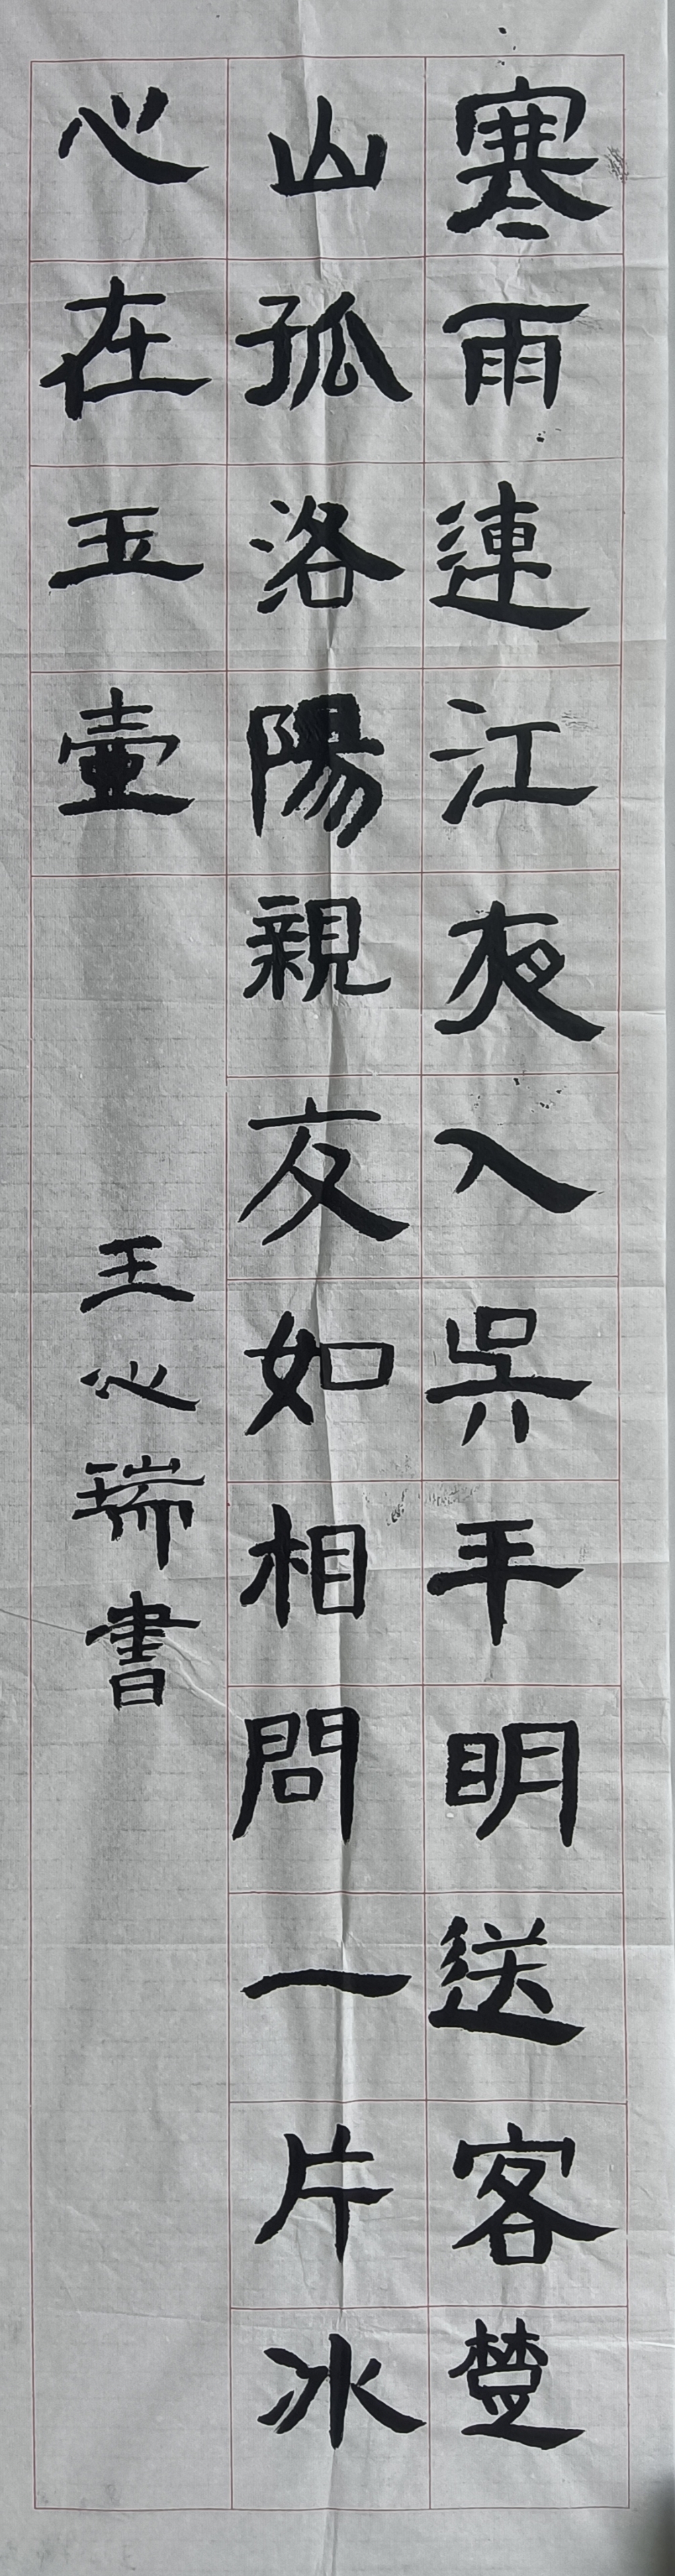 寒雨連江夜入吳平明送客楚
山孤洛陽親友如相問一片冰
心在玉壺
王心瑞書